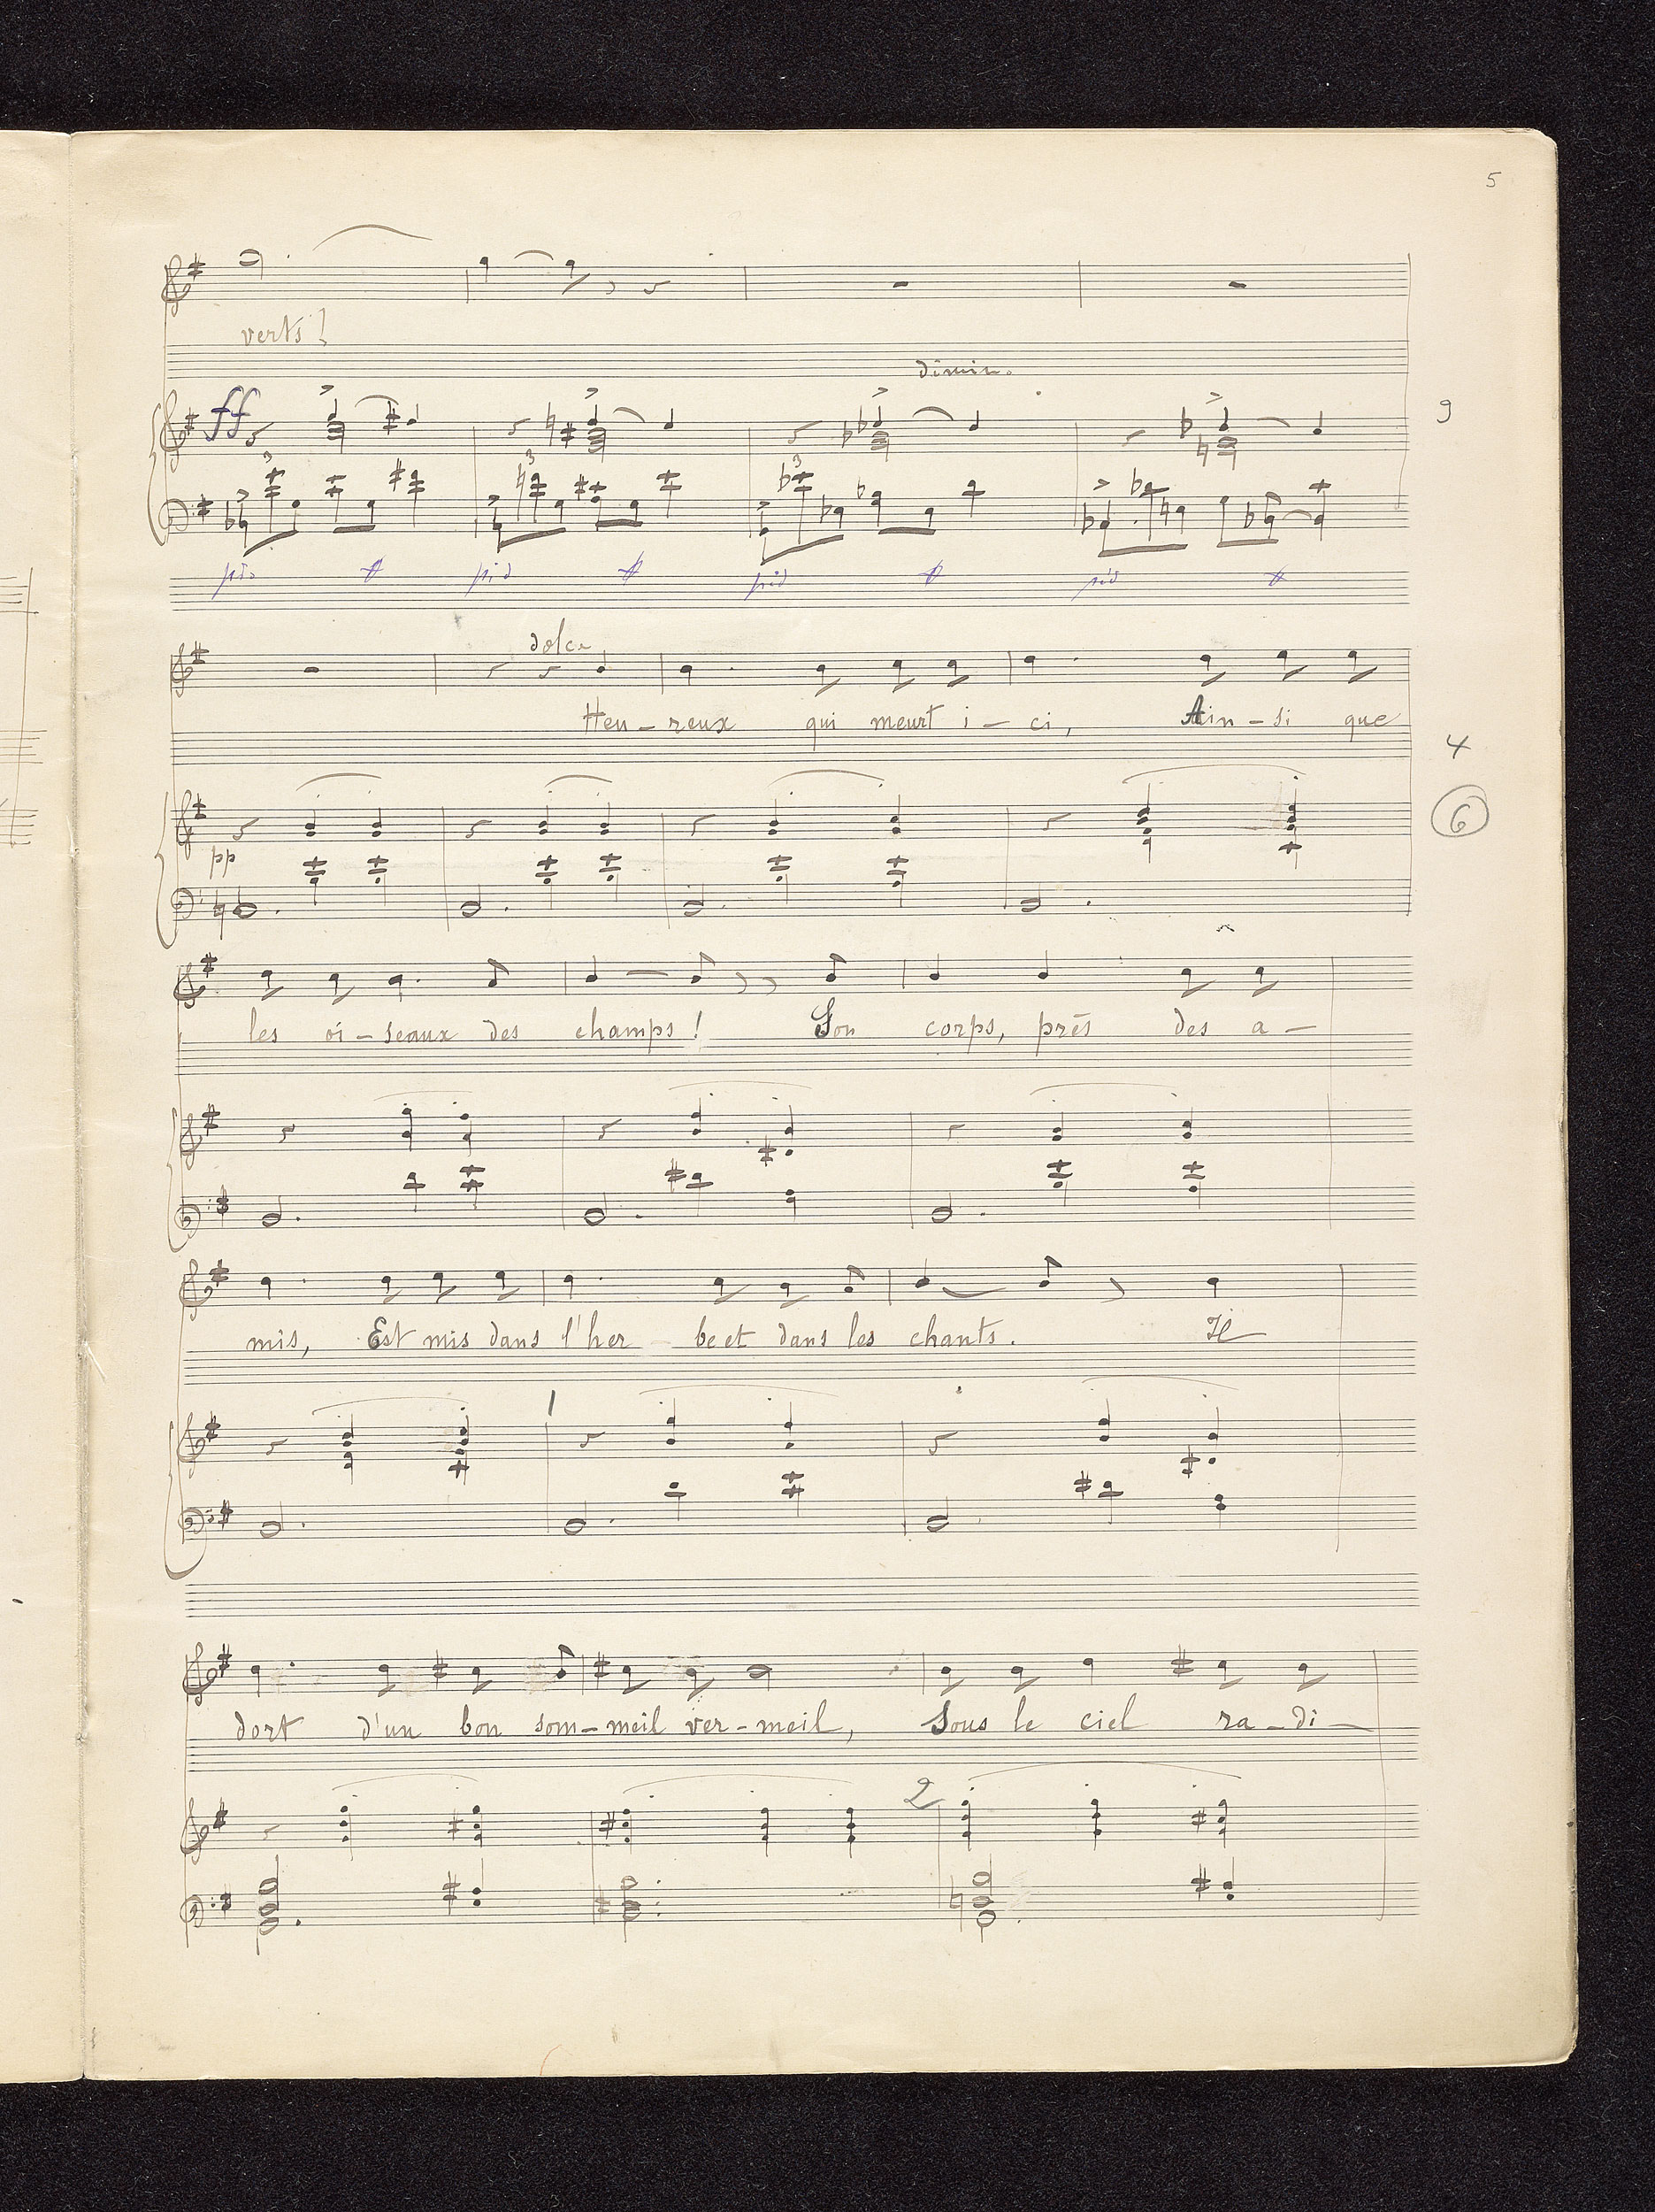 5
verts!
dimin.
ff
9
3
3
3
péd péd péd péd
dolce
Heu-reux qui meurt i-ci, Ain-si que
4
pp
6
les oi-seaux des champs! Son corps, près des a-
mis, Est mis dans l'her-be et dans les chants. Il
1
dort d'un bon som-meil ver-meil, Sous le ciel ra-di-
2